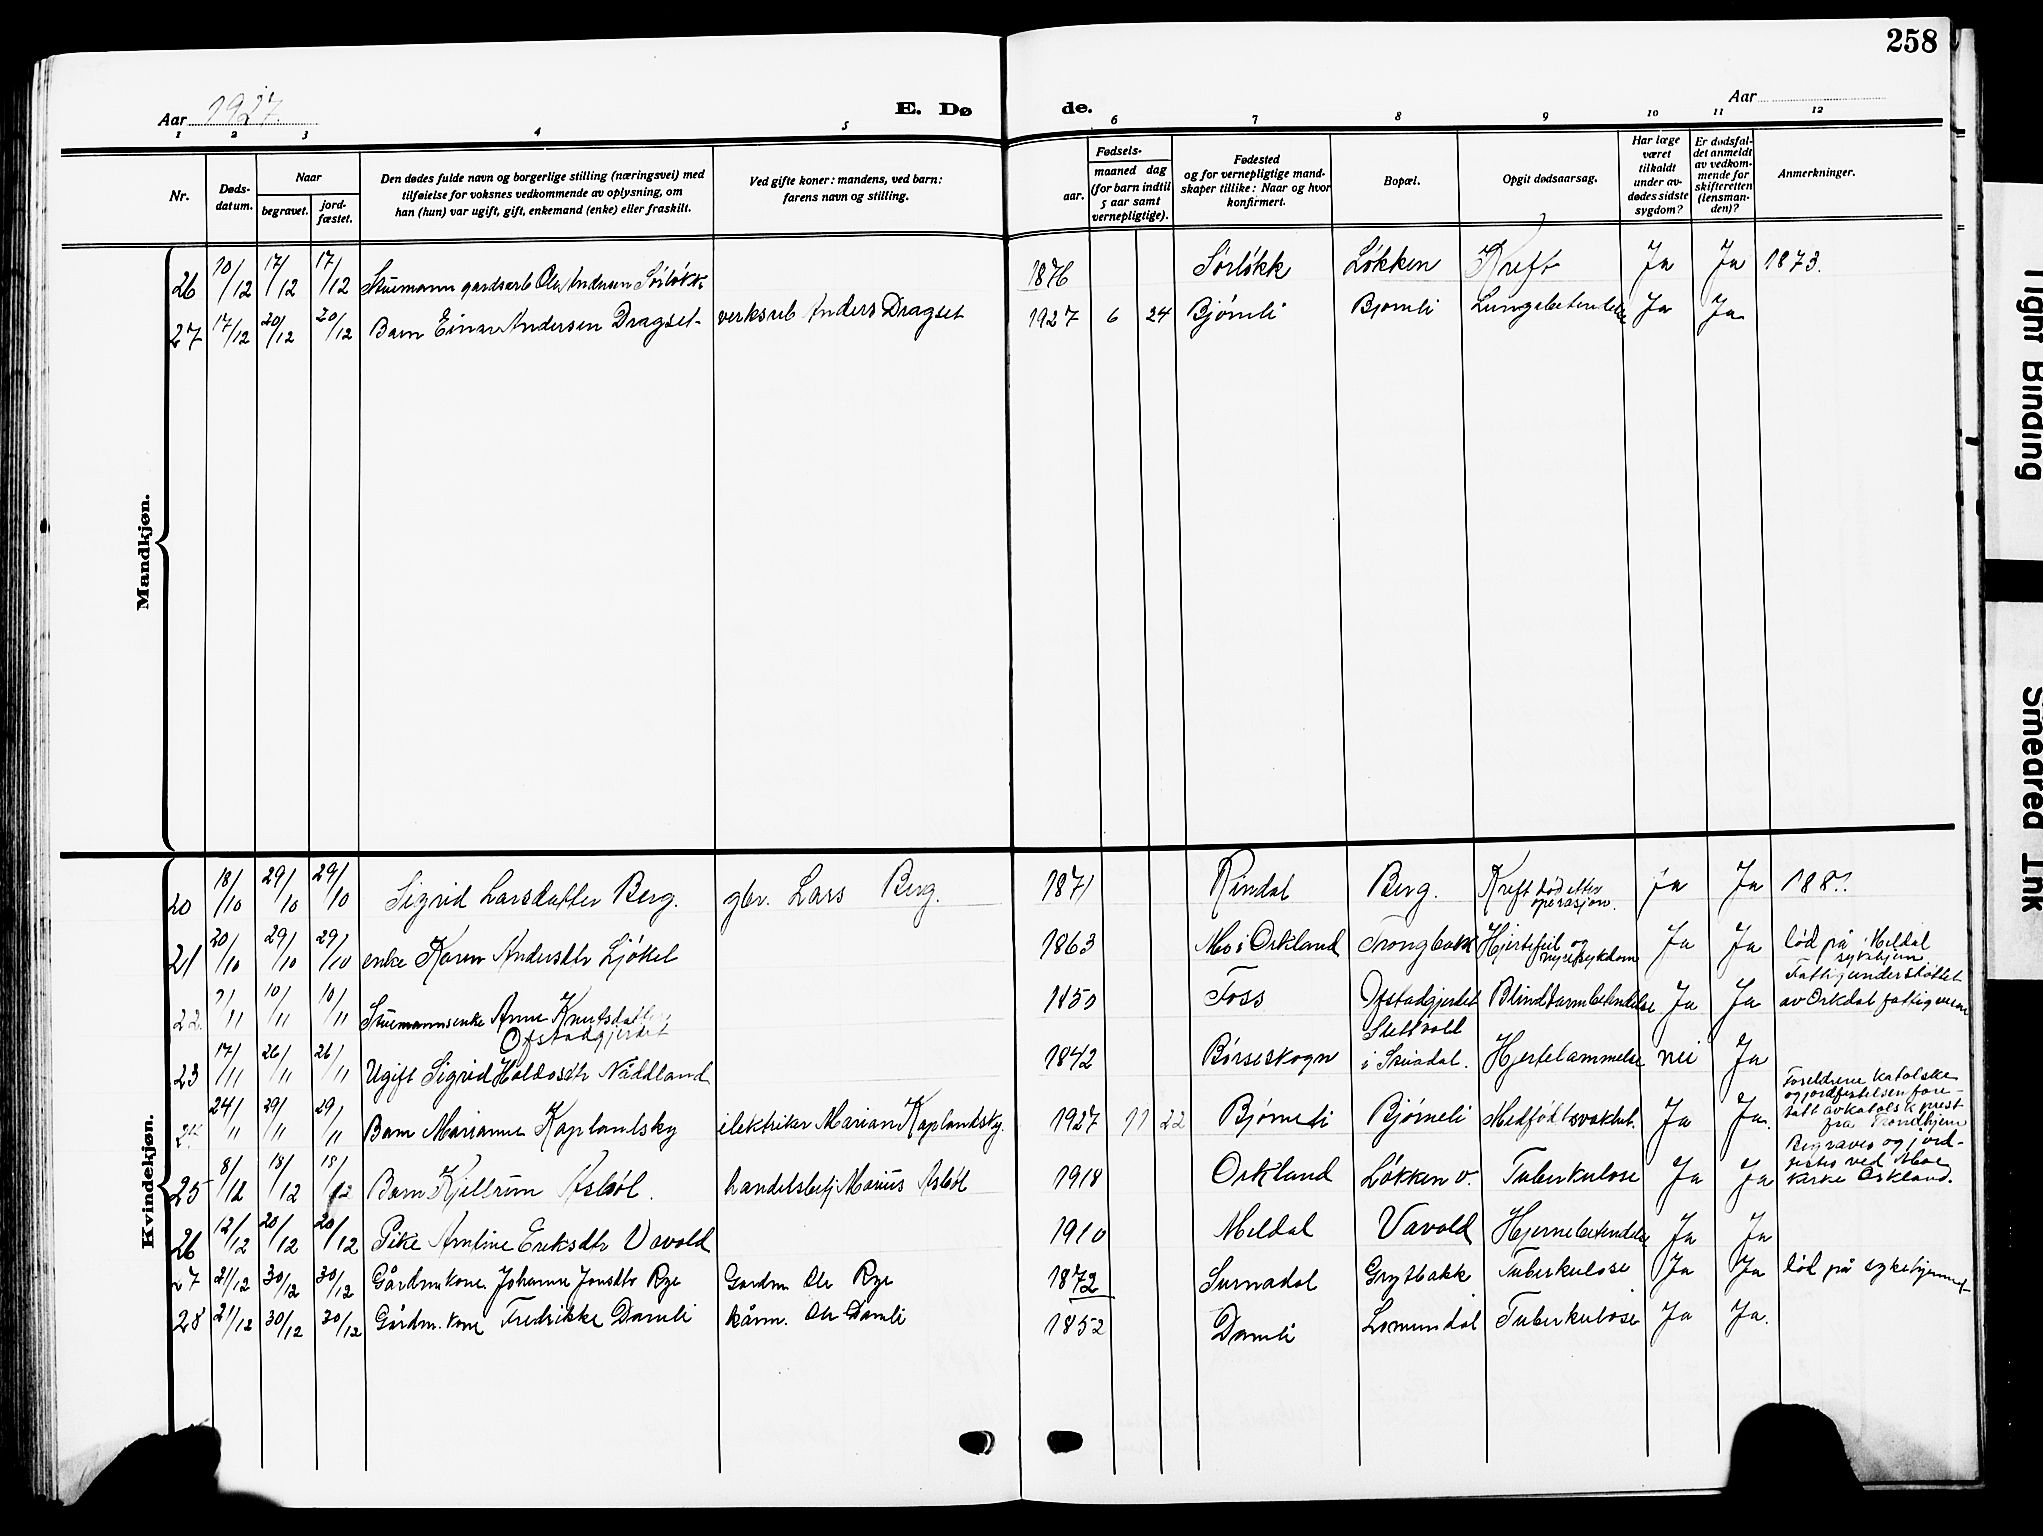 258
Aar 1927
E. Dø de.
Aar
1 2 3 4 5 6 7 8 9 10 11 12
Nr.
Døds-
datum.
Naar
begravet.
jord-
fæstet.
Den dødes fulde navn og borgerlige stilling (næringsvei) med
tilføielse for voksnes vedkommende av oplysning, om
han (hun) var ugift, gift, enkemand (enke) eller fraskilt.
Ved gifte koner: mandens, ved barn:
farens navn og stilling.
Fødsels-
aar.
maaned dag
(for barn indtil
5 aar samt
vernepligtige).
Fødested
og for vernepligtige mand-
skaper tillike: Naar og hvor
konfirmert.
Bopæl.
Opgit dødsaarsag.
Har læge
været
tilkaldt
under av-
dødes sidste
sygdom?
Er dødsfal-
det anmeldt
av vedkom-
mende for
skifteretten
(lensman-
den)?
Anmerkninger.
Mandkjøn.
26 10/12 17/12 17/12 Stuemann gardsarb Ole Andersen Sørløkk 1876 Sørløkk Løkken Kreft Ja Ja 1873.
27 17/12 20/12 20/12 Barn Einar Andersen Dragset verksarb Anders Dragset 1927 6 24 Bjørnli Bjørnli Lungebetendelse Ja Ja
Kvindekjøn.
20 18/10 29/10 29/10 Sigrid Larsdatter Berg. gbr. Lars Berg. 1871 Rindal Berg. Kreft død efter
operasjon. ja Ja
21 20/10 29/10 29/10 enke Karen Andersdtr Ljøkel 1863 Mo i Orkland Trongbakk Hjertefeil og
nyresykdom Ja Ja død på Meldal
sykehjem
22 /11 10/11 10/11 Stuemannsenke Anne Knutsdatter
Ofstadgjerdet 1850 Foss Ofstadgjerdet Blindtarmbetendelse Ja Ja Fattigunderstøttet
av Orkdal fattigvesen
23 17/11 26/11 26/11 Ugift Sigrid Haldosdtr Naddland 1842 Børseskogn Slettvold
i Skaudal. Hjertelammelse nei Ja
24 24/11 29/11 29/11 Barn Marianne Kaplandsky elektriker Marian Kaplandsky. 1927 11 22 Bjørneli Bjørneli Medfødt svakhet. Ja Ja. Foreldrene katolske
og jordfestelsen fore-
tatt av katolsk prest
fra Trondhjem
25 8/12 18/12 18/12 Barn Kjellrun Asbøl. handelsbetj Marius Asbøl 1918 Orkland Løkken v. Tuberkulose Ja Ja Begraves og jord-
festes ved Moe
kirke Orkland.
26 12/12 20/12 20/12 Pike Arntine Eriksdtr Vavold 1910 Meldal Vavold Hjernebetendelse Ja Ja
27 21/12 30/12 30/12 Gårdm. kone Johanna Jonsdtr Rye Gardm Ole Rye 1872 Surnadal Grytbakk Tuberkulose Ja Ja død på sykehjemmet
28 21/12 30/12 30/12 Gårdm. kone Fredrikke Damli kårm. Ole Damli 1852 Damli Lomundal Tuberkulose Ja Ja.
Tight Binding
Smeared Ink